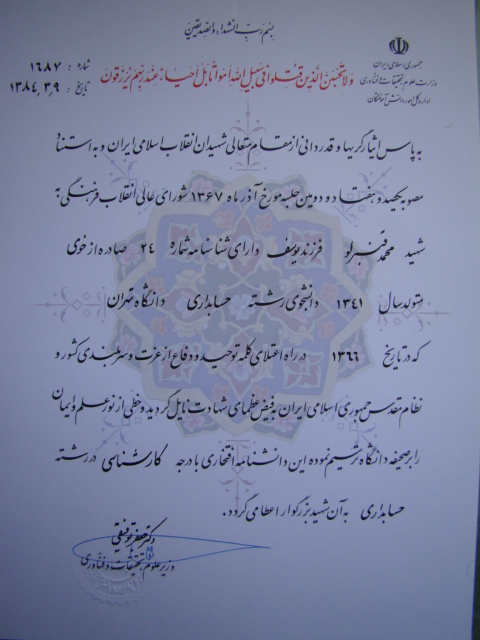 بسم رب الشهداء و الصدیقین
جمهوری اسلامی ایران
وزارت علوم تحقیقات و فناوری
اداره کل امور دانش آموختگان
شماره : ۱۶۸۷
تاریخ : ۱۳۸۴٫۳٫۹
ولا تحسبن الذین قتلوا فی سبیل الله امواتا بل احیاء عند ربهم یرزقون
به پاس ایثارگریها و قدردانی از مقام متعالی شهیدان انقلاب اسلامی ایران و به استناد
مصوبه یکصد و هفتاد و دومین جلسه مورخ آذر ماه ۱۳۶۷ شورای عالی انقلاب فرهنگی به
شهید محمد قنبرلو فرزند یوسف دارای شناسنامه شماره ۲۴ صادره از خوی
متولد سال ۱۳۴۱ دانشجوی رشته حسابداری دانشگاه تهران
که در تاریخ ۱۳۶۶ در راه اعتلای کلمه توحید و دفاع از عزت و سربلندی کشور و
نظام مقدس جمهوری اسلامی ایران به فیض عظمای شهادت نایل گردید و خطی از نور علم و ایمان
را بر صحیفه دانشگاه ترسیم نموده این دانشنامه افتخاری با درجه کارشناسی در رشته
حسابداری به آن شهید بزرگوار اعطا می گردد.
دکتر جعفر توفیقی
وزیر علوم، تحقیقات و فناوری